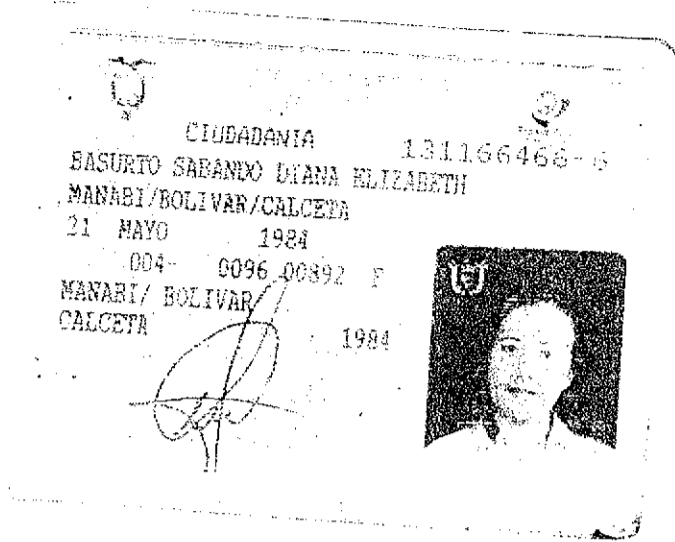 CIUDADANIA 131166466-6
BASURTO SABANDO DIANA ELIZABETH
MANABI/BOLIVAR/CALCETA
21 MAYO 1984
004- 0096 00892 F
MANABI/ BOLIVAR
CALCETA 1984